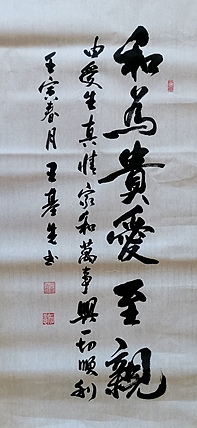 和為貴愛至親
由愛生真情家和萬事興一切順利
壬寅春月王基生书